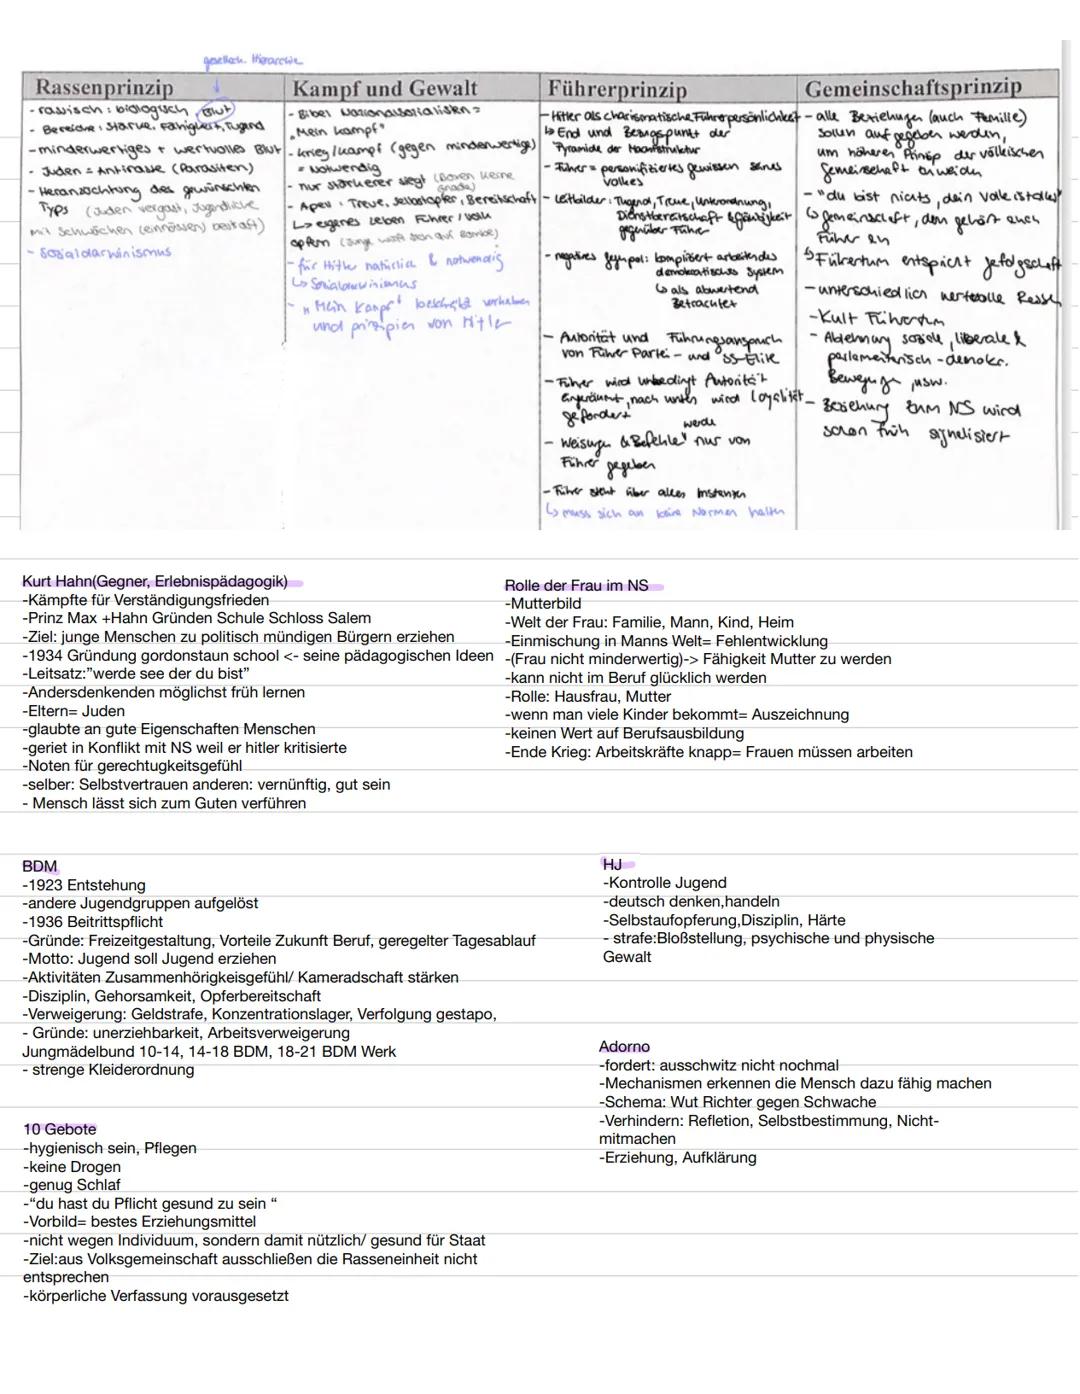 gesellsch. Hierarchie
Rassenprinzip
- rassisch: biologisch, Blut
- Bereiche: Stärke, Fähigkeit, Tugend
- minderwertiges + wertvolles Blut
- Juden = Antirasse (Parasiten)
- Heranzüchtung des gewünschten
Typs (Juden vergast, Jugendliche
mit Schwächen (einnässen) bestraft)
- Sozialdarwinismus
Kampf und Gewalt
- Bibel Nationalsozialisten =
"Mein Kampf"
- Krieg/Kampf (gegen minderwertige)
= Notwendig
- nur stärkerer siegt (Boxen keine
Gnade)
- Apell: Treue, selbstopfer, Bereitschaft
↳ eigenes Leben Führer/Volk
opfern (Junge wirft sich auf Bombe)
- für Hitler natürlich & notwendig
↳ Sozialdarwinismus
- "Mein Kampf" beschreibt vorhaben
und prinzipien von Hitler
Führerprinzip
- Hitler als charismatische Führerpersönlichkeit
↳ End und Bezugspunkt der
Pyramide der Machtstruktur
- Führer = personifiziertes gewissen seines
Volkes
- Leitbilder: Tugend, Treue, Unterordnung,
Dienstbereitschaft & Gläubigkeit
gegenüber Führer
- negatives gegenpol: kompliziert arbeitendes
demokratisches System
↳ als abwertend
Betrachtet
- Autorität und Führungsanspruch
von Führer Partei- und SS-Elite
- Führer wird unbedingt Autorität
eingeräumt, nach unten wird Loyalität
gefordert
- Weisungen & Befehle werde nur von
Führer gegeben
- Führer steht über allen Instanzen
↳ muss sich an keine Normen halten
Gemeinschaftsprinzip
- alle Beziehungen (auch Familie)
sollen aufgegeben werden,
um höheren Prinzip der völkischen
Gemeinschaft zu weichen
- "du bist nichts, dein Volk ist alles"
↳ Gemeinschaft, dem gehört auch
Führer an
↳ Führertum entspricht gefolgschaft
- unterschiedlich wertvolle Rassen
- Kult Führertum
- Ablehnung soziale, liberale &
parlamentarisch-demokr.
Bewegungen, usw.
- Beziehung zum NS wird
schon früh signalisiert
Kurt Hahn(Gegner, Erlebnispädagogik)
-Kämpfte für Verständigungsfrieden
-Prinz Max +Hahn Gründen Schule Schloss Salem
-Ziel: junge Menschen zu politisch mündigen Bürgern erziehen
-1934 Gründung gordonstaun school <- seine pädagogischen Ideen
-Leitsatz:"werde see der du bist"
-Andersdenkenden möglichst früh lernen
-Eltern= Juden
-glaubte an gute Eigenschaften Menschen
-geriet in Konflikt mit NS weil er hitler kritisierte
-Noten für gerechtugkeitsgefühl
-selber: Selbstvertrauen anderen: vernünftig, gut sein
- Mensch lässt sich zum Guten verführen
Rolle der Frau im NS
-Mutterbild
-Welt der Frau: Familie, Mann, Kind, Heim
-Einmischung in Manns Welt= Fehlentwicklung
-(Frau nicht minderwertig)-> Fähigkeit Mutter zu werden
-kann nicht im Beruf glücklich werden
-Rolle: Hausfrau, Mutter
-wenn man viele Kinder bekommt= Auszeichnung
-keinen Wert auf Berufsausbildung
-Ende Krieg: Arbeitskräfte knapp= Frauen müssen arbeiten
BDM
-1923 Entstehung
-andere Jugendgruppen aufgelöst
-1936 Beitrittspflicht
-Gründe: Freizeitgestaltung, Vorteile Zukunft Beruf, geregelter Tagesablauf
-Motto: Jugend soll Jugend erziehen
-Aktivitäten Zusammenhörigkeisgefühl/ Kameradschaft stärken
-Disziplin, Gehorsamkeit, Opferbereitschaft
-Verweigerung: Geldstrafe, Konzentrationslager, Verfolgung gestapo,
- Gründe: unerziehbarkeit, Arbeitsverweigerung
Jungmädelbund 10-14, 14-18 BDM, 18-21 BDM Werk
- strenge Kleiderordnung
HJ
-Kontrolle Jugend
-deutsch denken,handeln
-Selbstaufopferung,Disziplin, Härte
- strafe:Bloßstellung, psychische und physische
Gewalt
Adorno
-fordert: ausschwitz nicht nochmal
-Mechanismen erkennen die Mensch dazu fähig machen
-Schema: Wut Richter gegen Schwache
-Verhindern: Refletion, Selbstbestimmung, Nicht-
mitmachen
-Erziehung, Aufklärung
10 Gebote
-hygienisch sein, Pflegen
-keine Drogen
-genug Schlaf
-"du hast du Pflicht gesund zu sein "
-Vorbild= bestes Erziehungsmittel
-nicht wegen Individuum, sondern damit nützlich/ gesund für Staat
-Ziel:aus Volksgemeinschaft ausschließen die Rasseneinheit nicht
entsprechen
-körperliche Verfassung vorausgesetzt